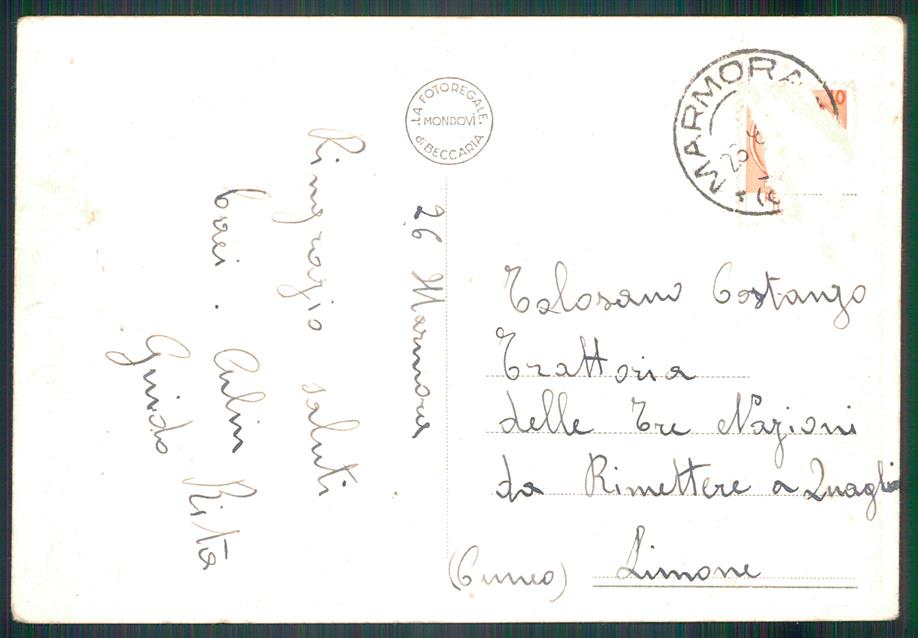 26 Marmora
Ringrazio saluti
Cari. Rita
Guido
LA FOTOREGALE
MONDOVÌ
di BECCARIA
MARMORA
Tolosano Costanzo
Trattoria
delle Tre Nazioni
da Rimettere a Quaglia
(Cuneo) Limone